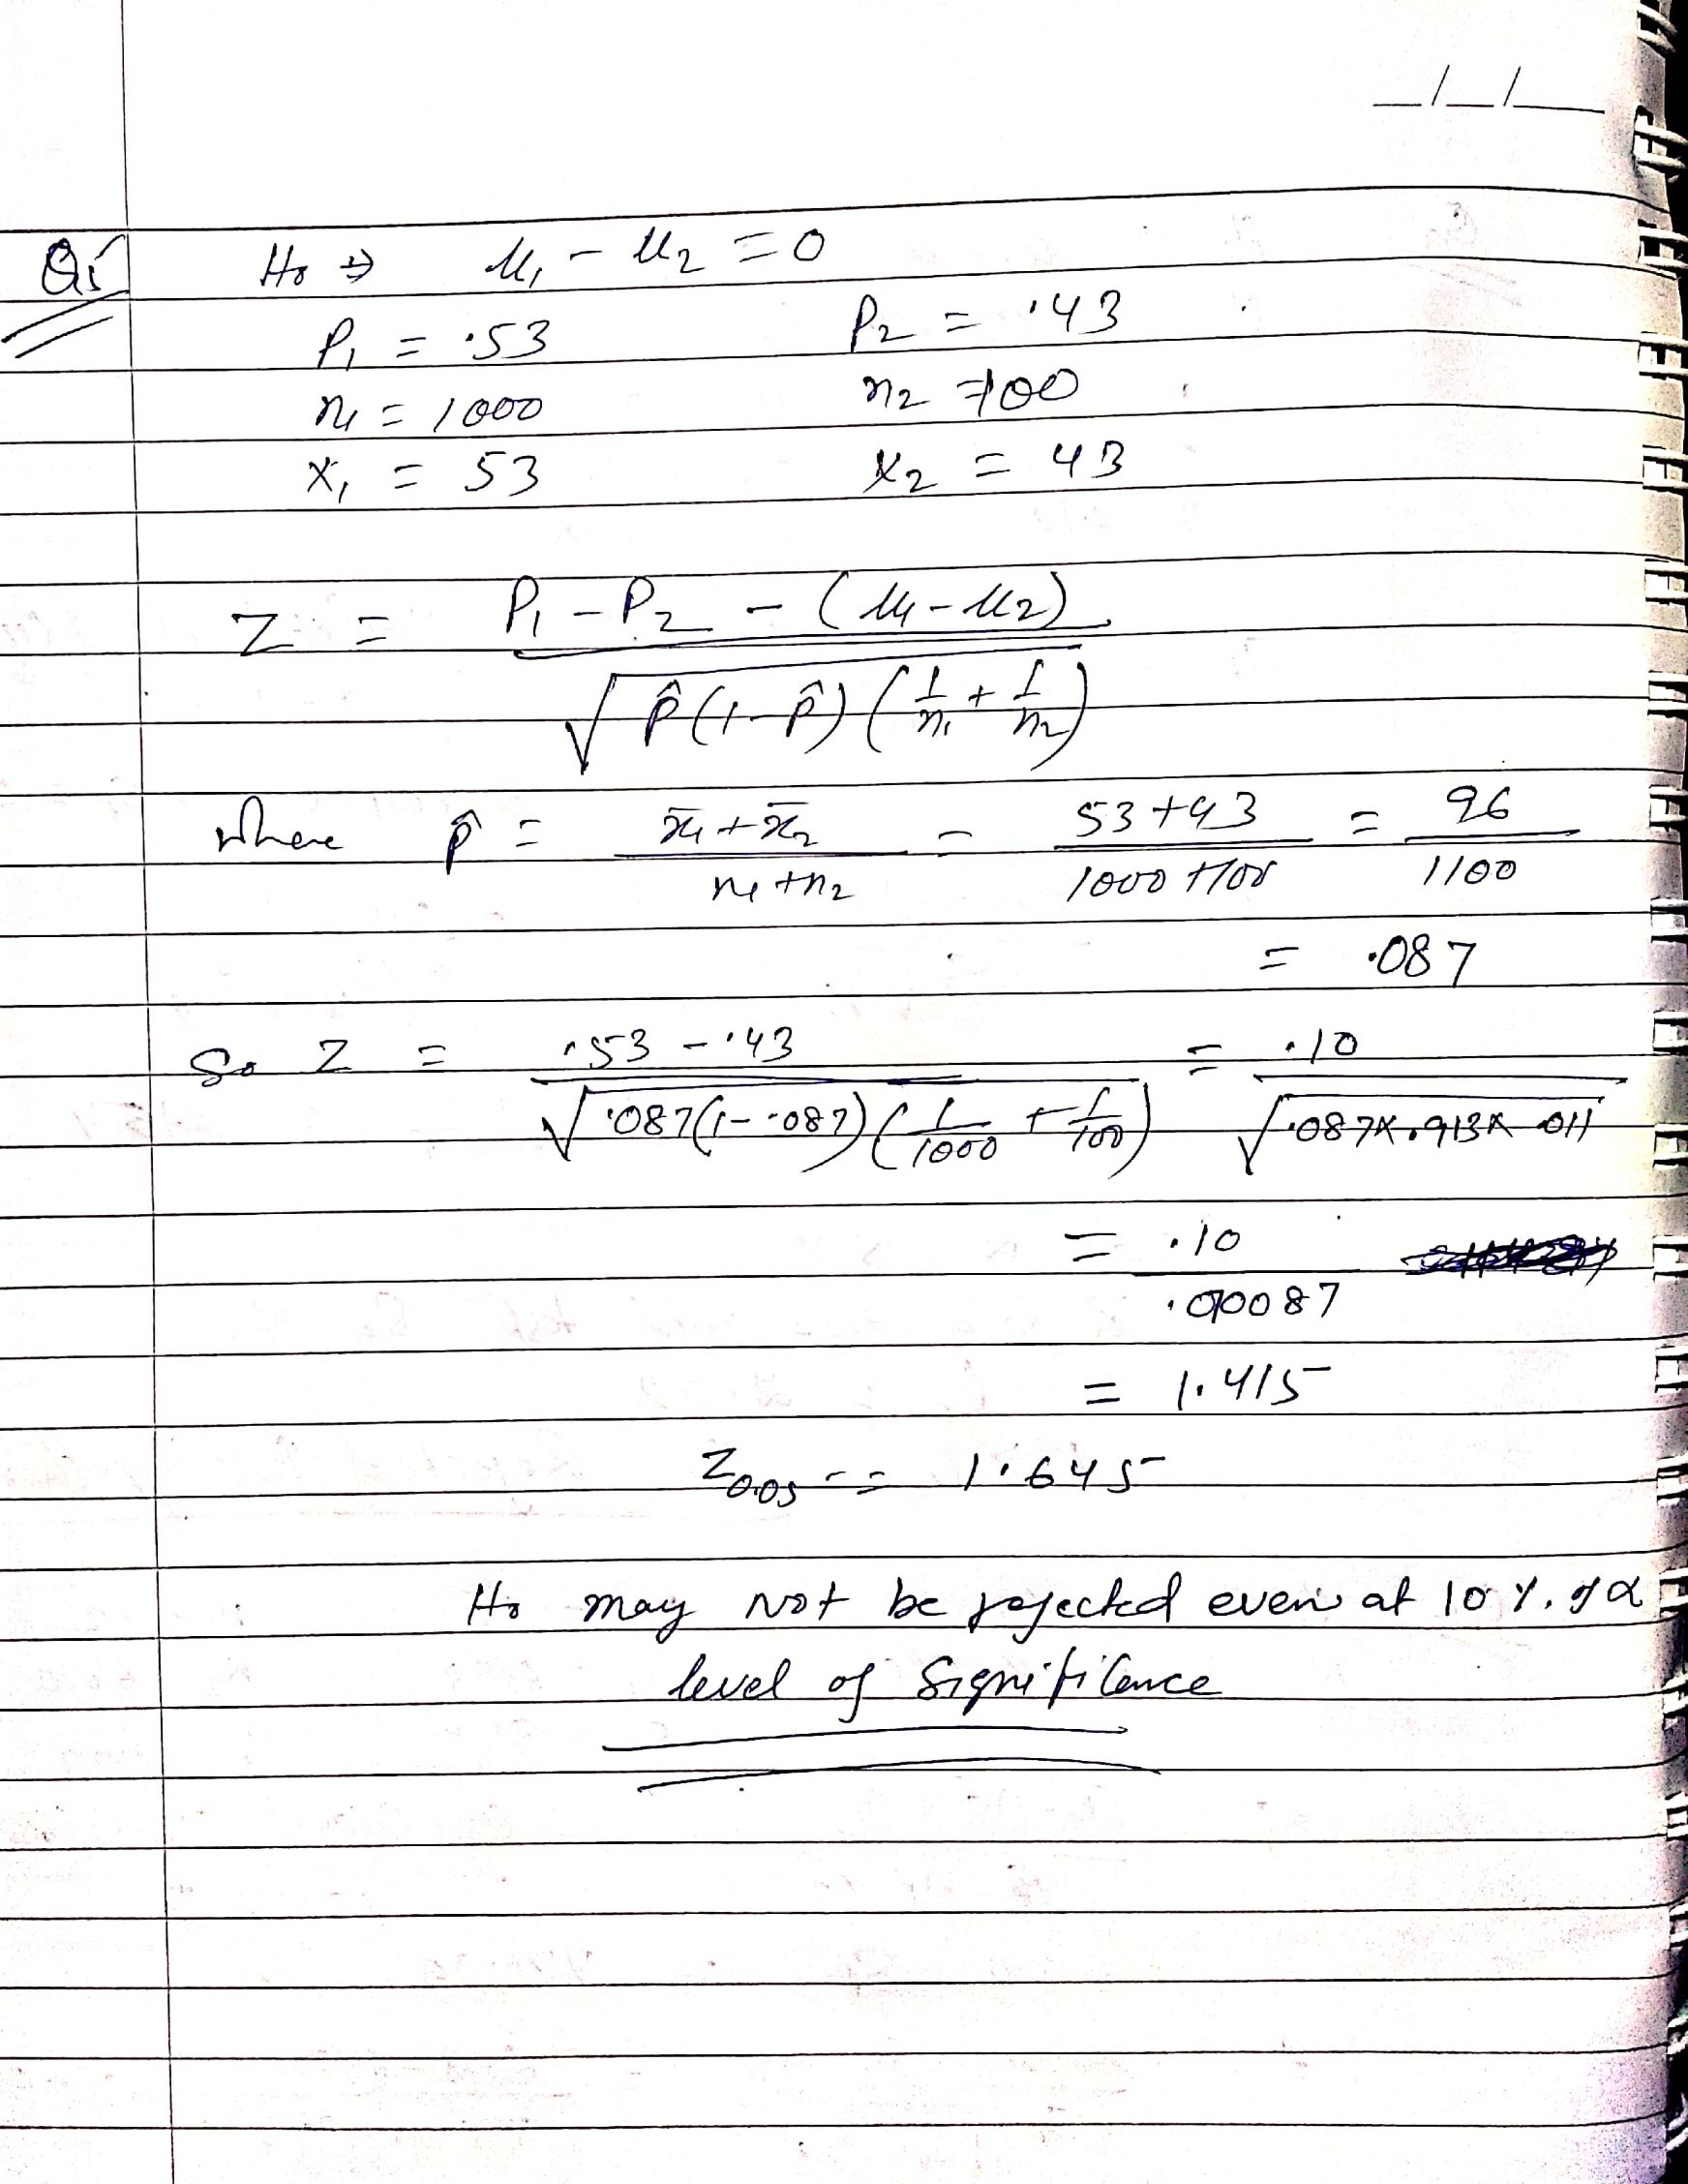 _/_/__
Q1 H0 ⇒ μ1 - μ2 = 0
P1 = .53 P2 = .43
n1 = 1000 n2 = 100
X1 = 53 X2 = 43
Z = P1 - P2 - (μ1 - μ2)
√ p̂(1-p̂) (1/n1 + 1/n2)
where p̂ = x̄1 + x̄2 / n1 + n2 = 53+43 / 1000+100 = 96 / 1100
= .087
So Z = .53 - .43 / √ .087(1-.087) (1/1000 + 1/100) = .10 / √ .087x.913x.011
= .10 / .00087
= 1.415
Z0.05 = = 1.645
H0 may not be rejected even at 10 %. of α
level of Significance